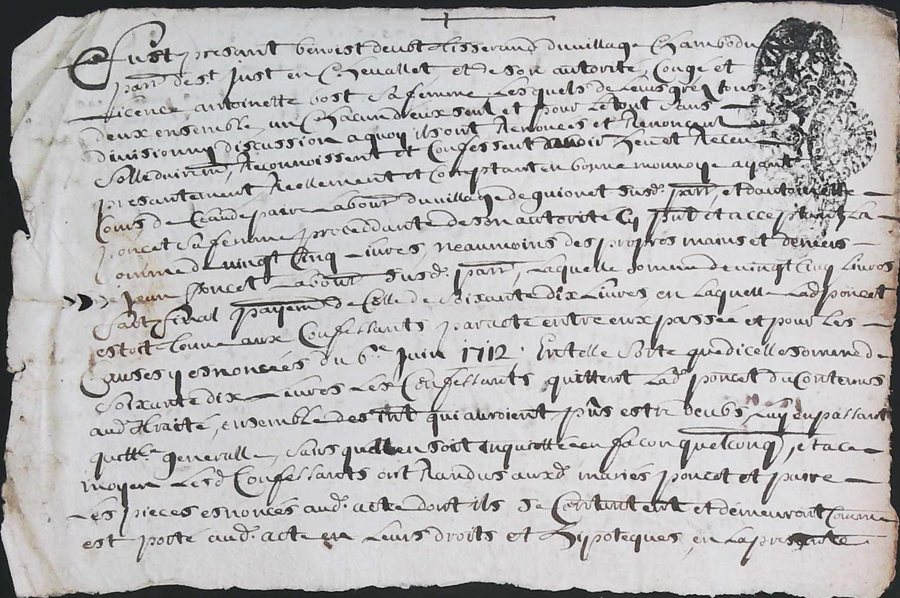 fust presant benoist deubt tisserand du village Chambodu
parr. de st just en Chevallet, et de son autorité, Congé et
licence antoinette bost sa femme lesquels de leurs grés tous
deux ensemble, un Chacun d'eux seul et pour le tout sans
division ny discussion a quoy ils ont Renonces et Renoncent
Sollduirem. Reconnoissent et Confessent avoir heu et Receu
presantement Reellement et Comptant en bonne monnoye ayant
Cours de Claude paire labour. du village de guionet susd. parr. et d'antoinette
poncet sa femme procedante de son autorité Cy pnt. et acceptant la
somme de vingt Cinq livres, neaumoins des propres mains et deniers
jean poncet labour. susd. parr. laquelle somme de vingt Cinq livres
fait final payem. de Celle de soixante dix livres en laquelle lad. poncet
estoit tenue aux Confessants par acte entre eux passée et pour les
Causes y esnoncées du 6e juin 1712. En telle sorte que d'icelle somme de
soixante dix livres les Confessants quittent lad. poncet du Contenus
aud. traité, ensemble des qui auroient pûs estre deubs, luy en passant
quitte generalle, sans quelle en soit inquiettée en facon quelconq. et a ce
moyen lesd. Confessants ont Randus auxd. maries poncet et paire
les pieces esnoncés aud. acte dont ils se Contentent et demeurant Comme
est porté aud. acte en leurs droits et hypoteques, en la presente